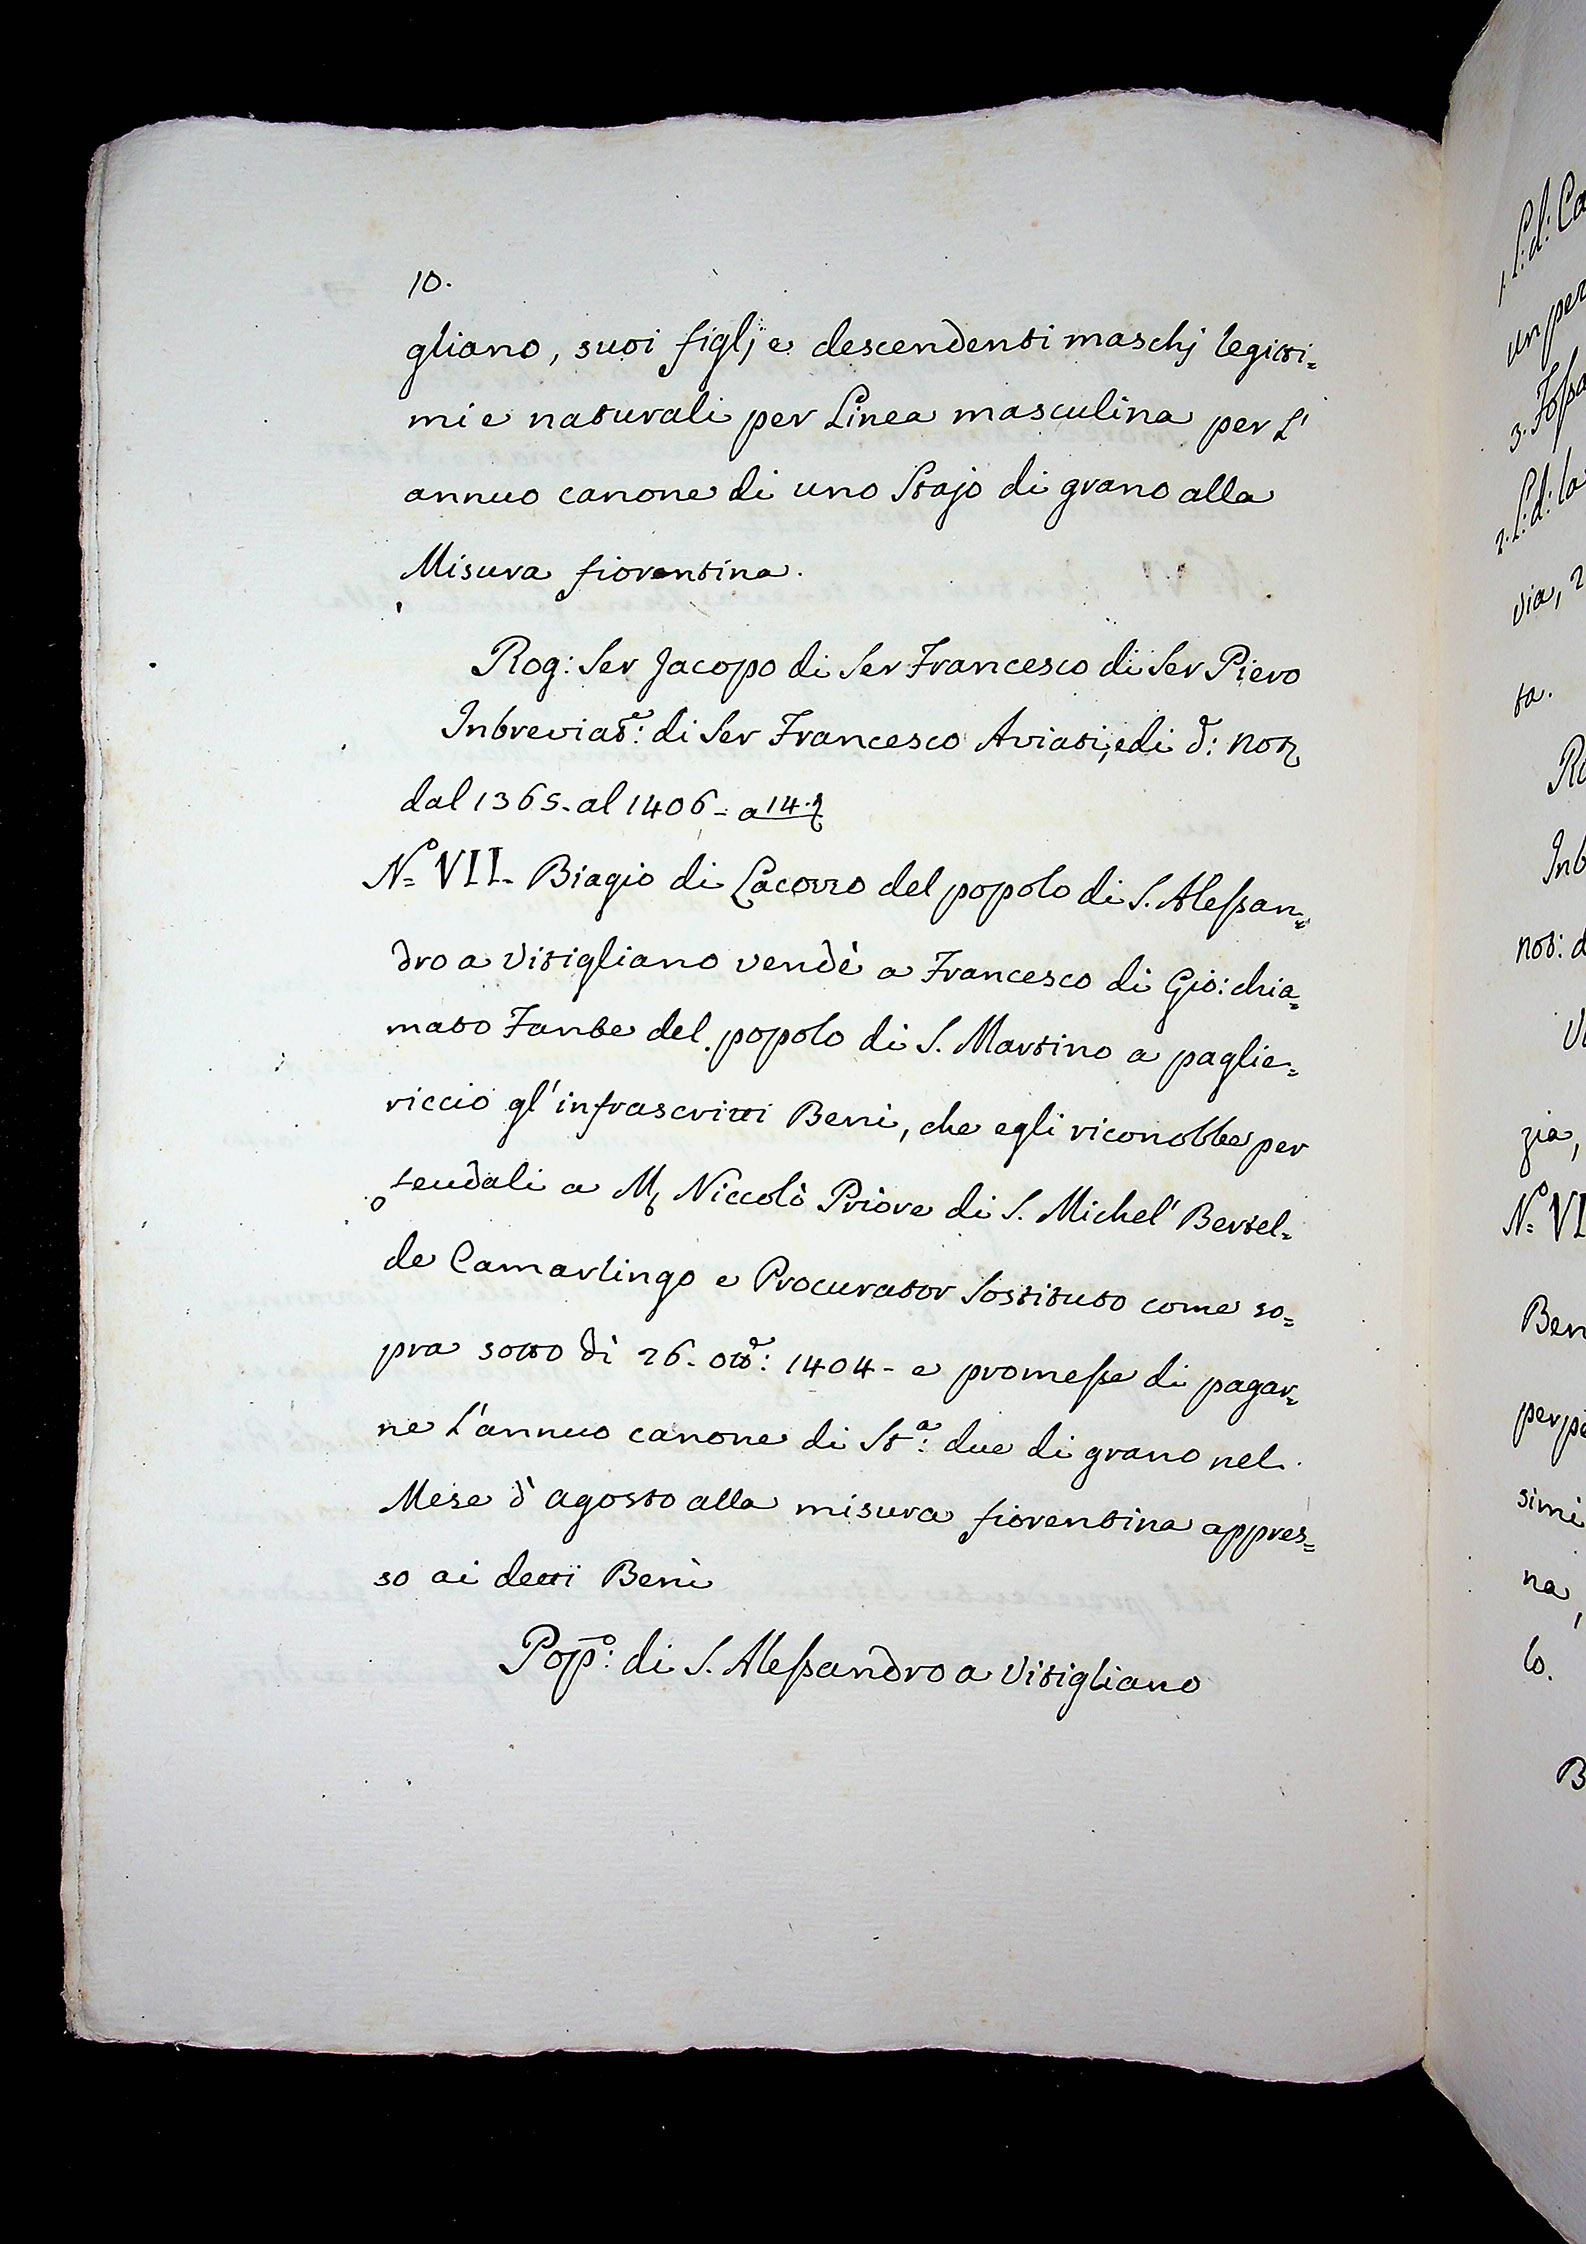 10.
gliano, suoi figlj e descendenti maschj legitti=
mi e naturali per Linea masculina per L'
annuo canone di uno Stajo di grano alla
Misura fiorentina.
Rog: Ser Jacopo di Ser Francesco di Ser Piero
Inbreviat.e: di Ser Francesco Aviati, e di d: not
dal 1365. al 1406 - a 14.
N.o VII. Biagio di Lacorro del popolo di S. Alessan=
dro a Vitigliano vendè a Francesco di Gio: chia=
mato Fante del popolo di S. Martino a paglie=
riccio gl' infrascritti Beni, che egli riconobbe per
feudali a M Niccolò Priore di S. Michel' Bertel=
de Camarlingo e Procurator Sostituto come so=
pra sotto dì 26. ott.e: 1404 - e promesse di pagar=
ne L'annuo canone di St.a: due di grano nel
Mese d' agosto alla misura fiorentina appres=
so ai detti Beni
Pop.o: di S. Alessandro a Vitigliano
1. L: d: Ca
un per
3. Fossa
2. L: d: la
via, 2
ta.
Ro
Inb
not: d
zia,
N.o VI
Ben
perpe
simi
na,
lo.
B